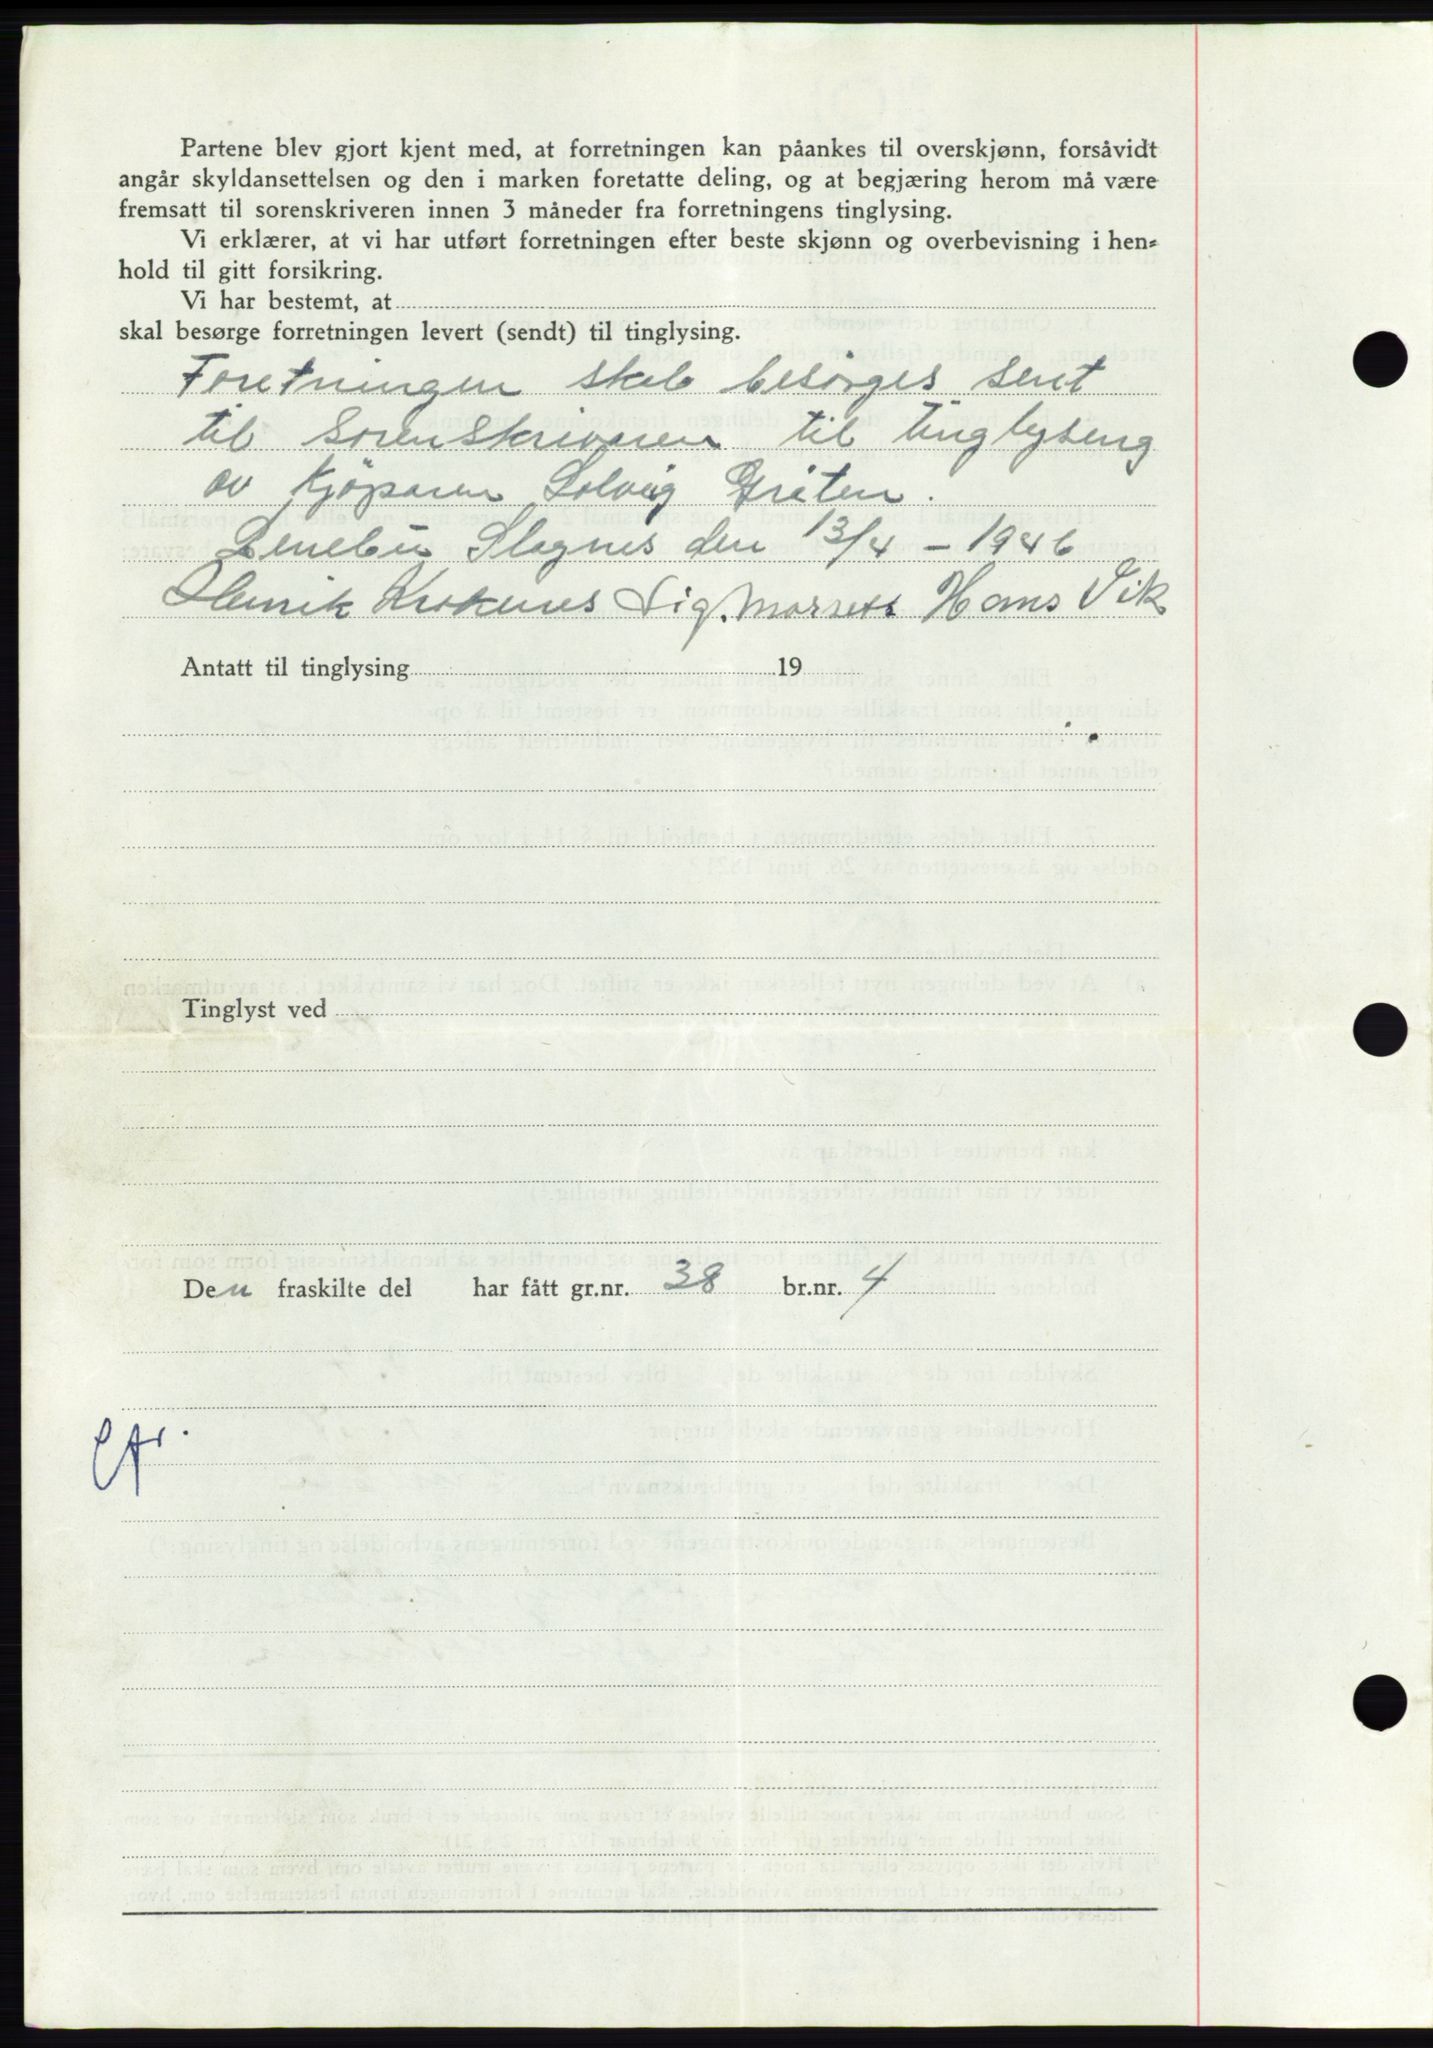 Partene blev gjort kjent med, at forretningen kan påankes til overskjønn, forsåvidt
angår skyldansettelsen og den i marken foretatte deling, og at begjæring herom må være
fremsatt til sorenskriveren innen 3 måneder fra forretningens tinglysing.
Vi erklærer, at vi har utført forretningen efter beste skjønn og overbevisning i hen-
hold til gitt forsikring.
Vi har bestemt, at
skal besørge forretningen levert (sendt) til tinglysing.
Foretningen skal besörges sent
til sorenskrivaren til tinglyseng
av kjöparen Solveig
Slagnes den 13/4 - 1946
Henrik Kroknes Sig. Hans Vik
Antatt til tinglysing 19
Tinglyst ved
Den fraskilte del har fått gr.nr. 38 br.nr. 4